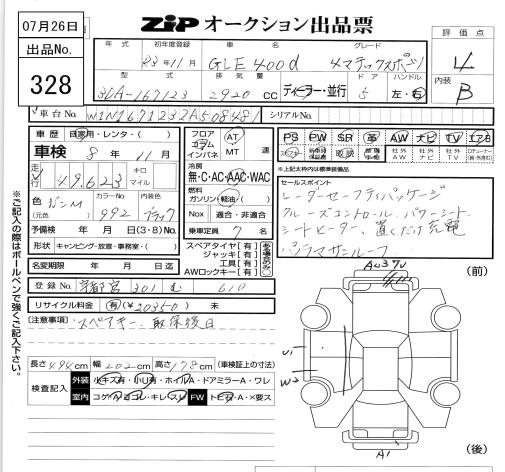 07月26日
出品No.
328
ZIP オークション出品票
評価点
4
内装
B
年式 初年度登録 車名 グレード
23年11月 GLE400d 4マチックスポーツ
型式 排気量 ドア ハンドル
3LA-167123 2920 CC ディーラー・並行 5 左・右
車台No. W1N1671232A508481 シリアルNo.
車歴 自家用・レンタ・( )
車検 8年11月
走行 49,623 キロ マイル
色 (元色) カラーNo. 992 内装色 ブラック
予備検 年 月 日(3・8)No.
形状 キャンピング・放置・事務室・( )
名変期限 年 月 日迄
登録No. 宇都宮 301 む 610
リサイクル料金 有(¥20350) 未
フロア コラム インパネ AT MT 速
無・C・AC・AAC・WAC
燃料 ガソリン・軽油・( )
Nox 適合・非適合
乗車定員 7 名
スペアタイヤ[有]
ジャッキ[有]
工具[有]
AWロックキー[有]
PS PW SR 革 AW ナビ TV エアB
社外AW 社外ナビ 社外TV
*上記太枠内は標準装備品
セールスポイント
レーダーセーフティパッケージ
クルーズコントロール、パワーシート、
シートヒーター、置くだけ充電
パノラマサンルーフ
[注意事項] スペアキー、取保後日
長さ494cm 幅202cm 高さ178cm (車検証上の寸法)
検査記入 外装 小キズ有・小U有・ホイルA・ドアミラーA・ワレ
室内 コゲ・ヨゴレ・キレ・スレ FW トビA・A・X要ス
※ご記入の際はボールペンで強くご記入下さい。
(前)
U1
W2
A1
(後)